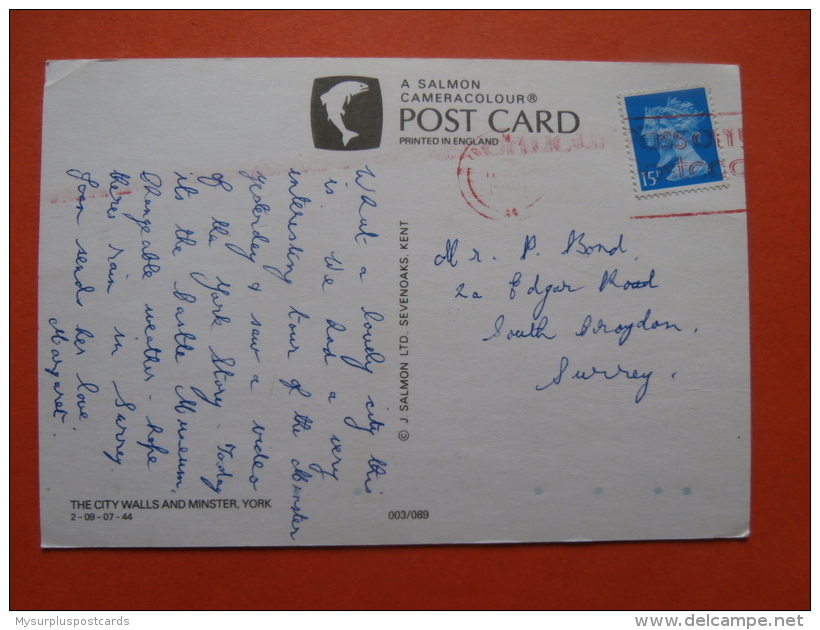 A SALMON
CAMERACOLOUR®
POST CARD
PRINTED IN ENGLAND
15P
44
What a lovely city this
is. We had a very
interesting tour of the Minster
yesterday & saw a video
of the York Story - Today
its the Castle Museum.
Changeable weather - hope
theres rain in Surrey.
Joan sends her love.
Margaret.
© J. SALMON LTD. SEVENOAKS, KENT
Mr. P. Bond.
2a Edgar Road
South Croydon.
Surrey.
THE CITY WALLS AND MINSTER, YORK
2-09-07-44
003/089
Mysurpluspostcards
delcampe.net